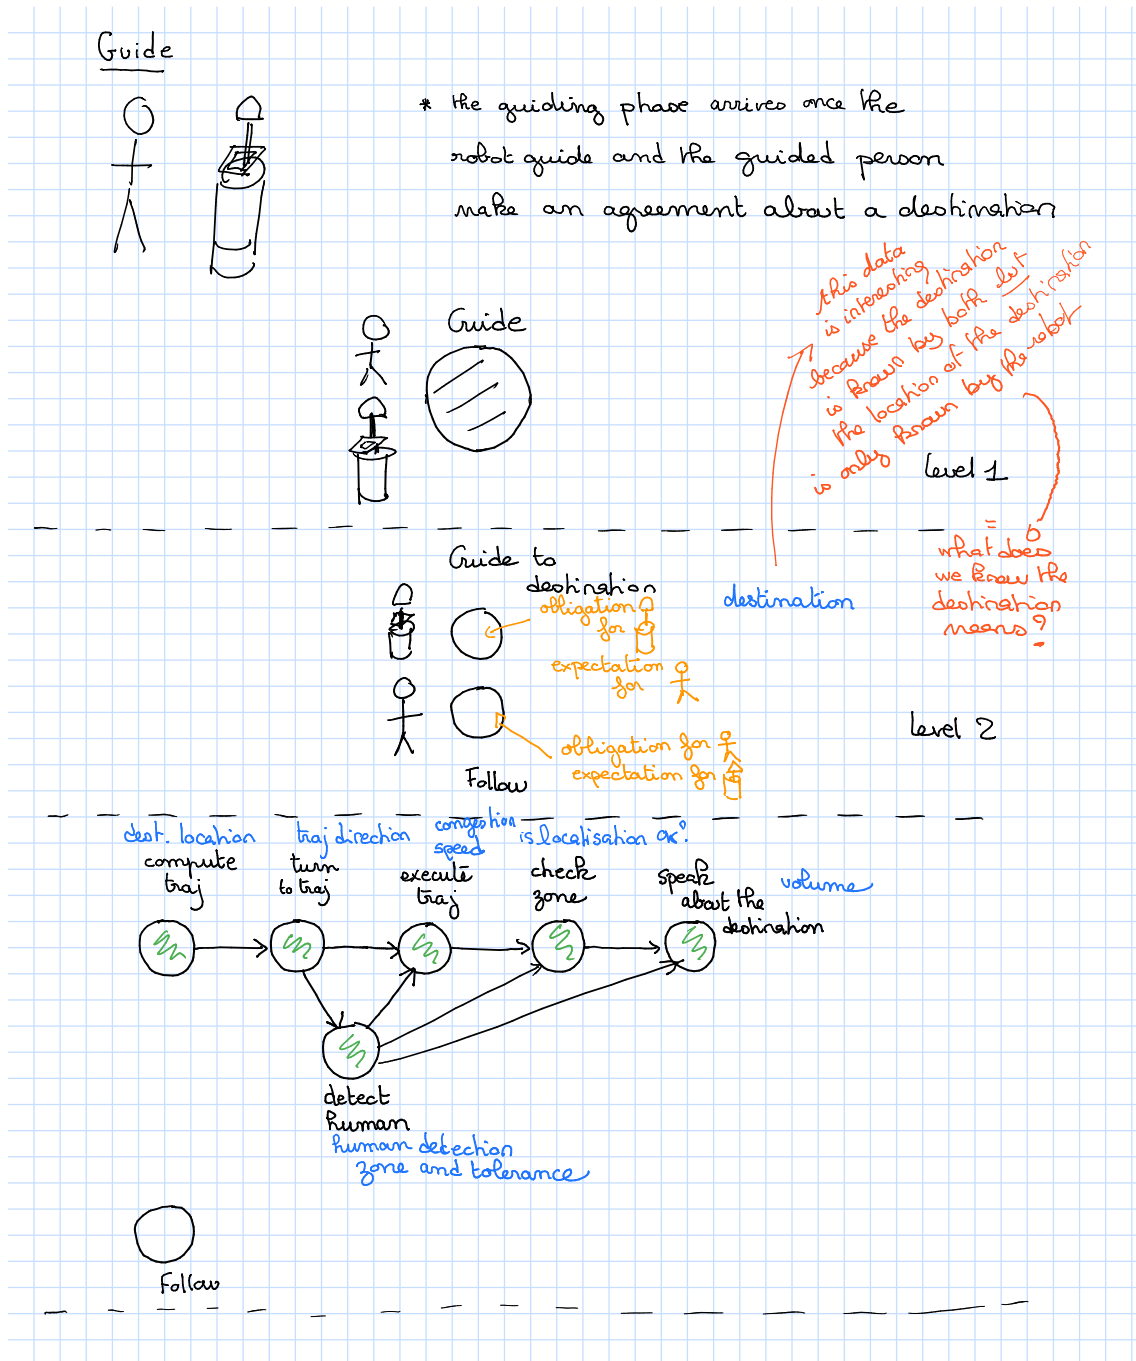 Guide
* the guiding phase arrives once the
robot guide and the guided person
make an agreement about a destination
this data
is interesting
because the destination
is known by both but
the location of the destination
is only known by the robot
Guide
Level 1
what does
we know the
destination
means?
Guide to
destination
destination
obligation
for
expectation
for
obligation for
expectation for
Follow
Level 2
dest. location
traj direction
congestion
speed
is localisation ok?
compute
traj
turn
to traj
execute
traj
check
zone
speak
about the
destination
volume
detect
human
human detection
zone and tolerance
Follow